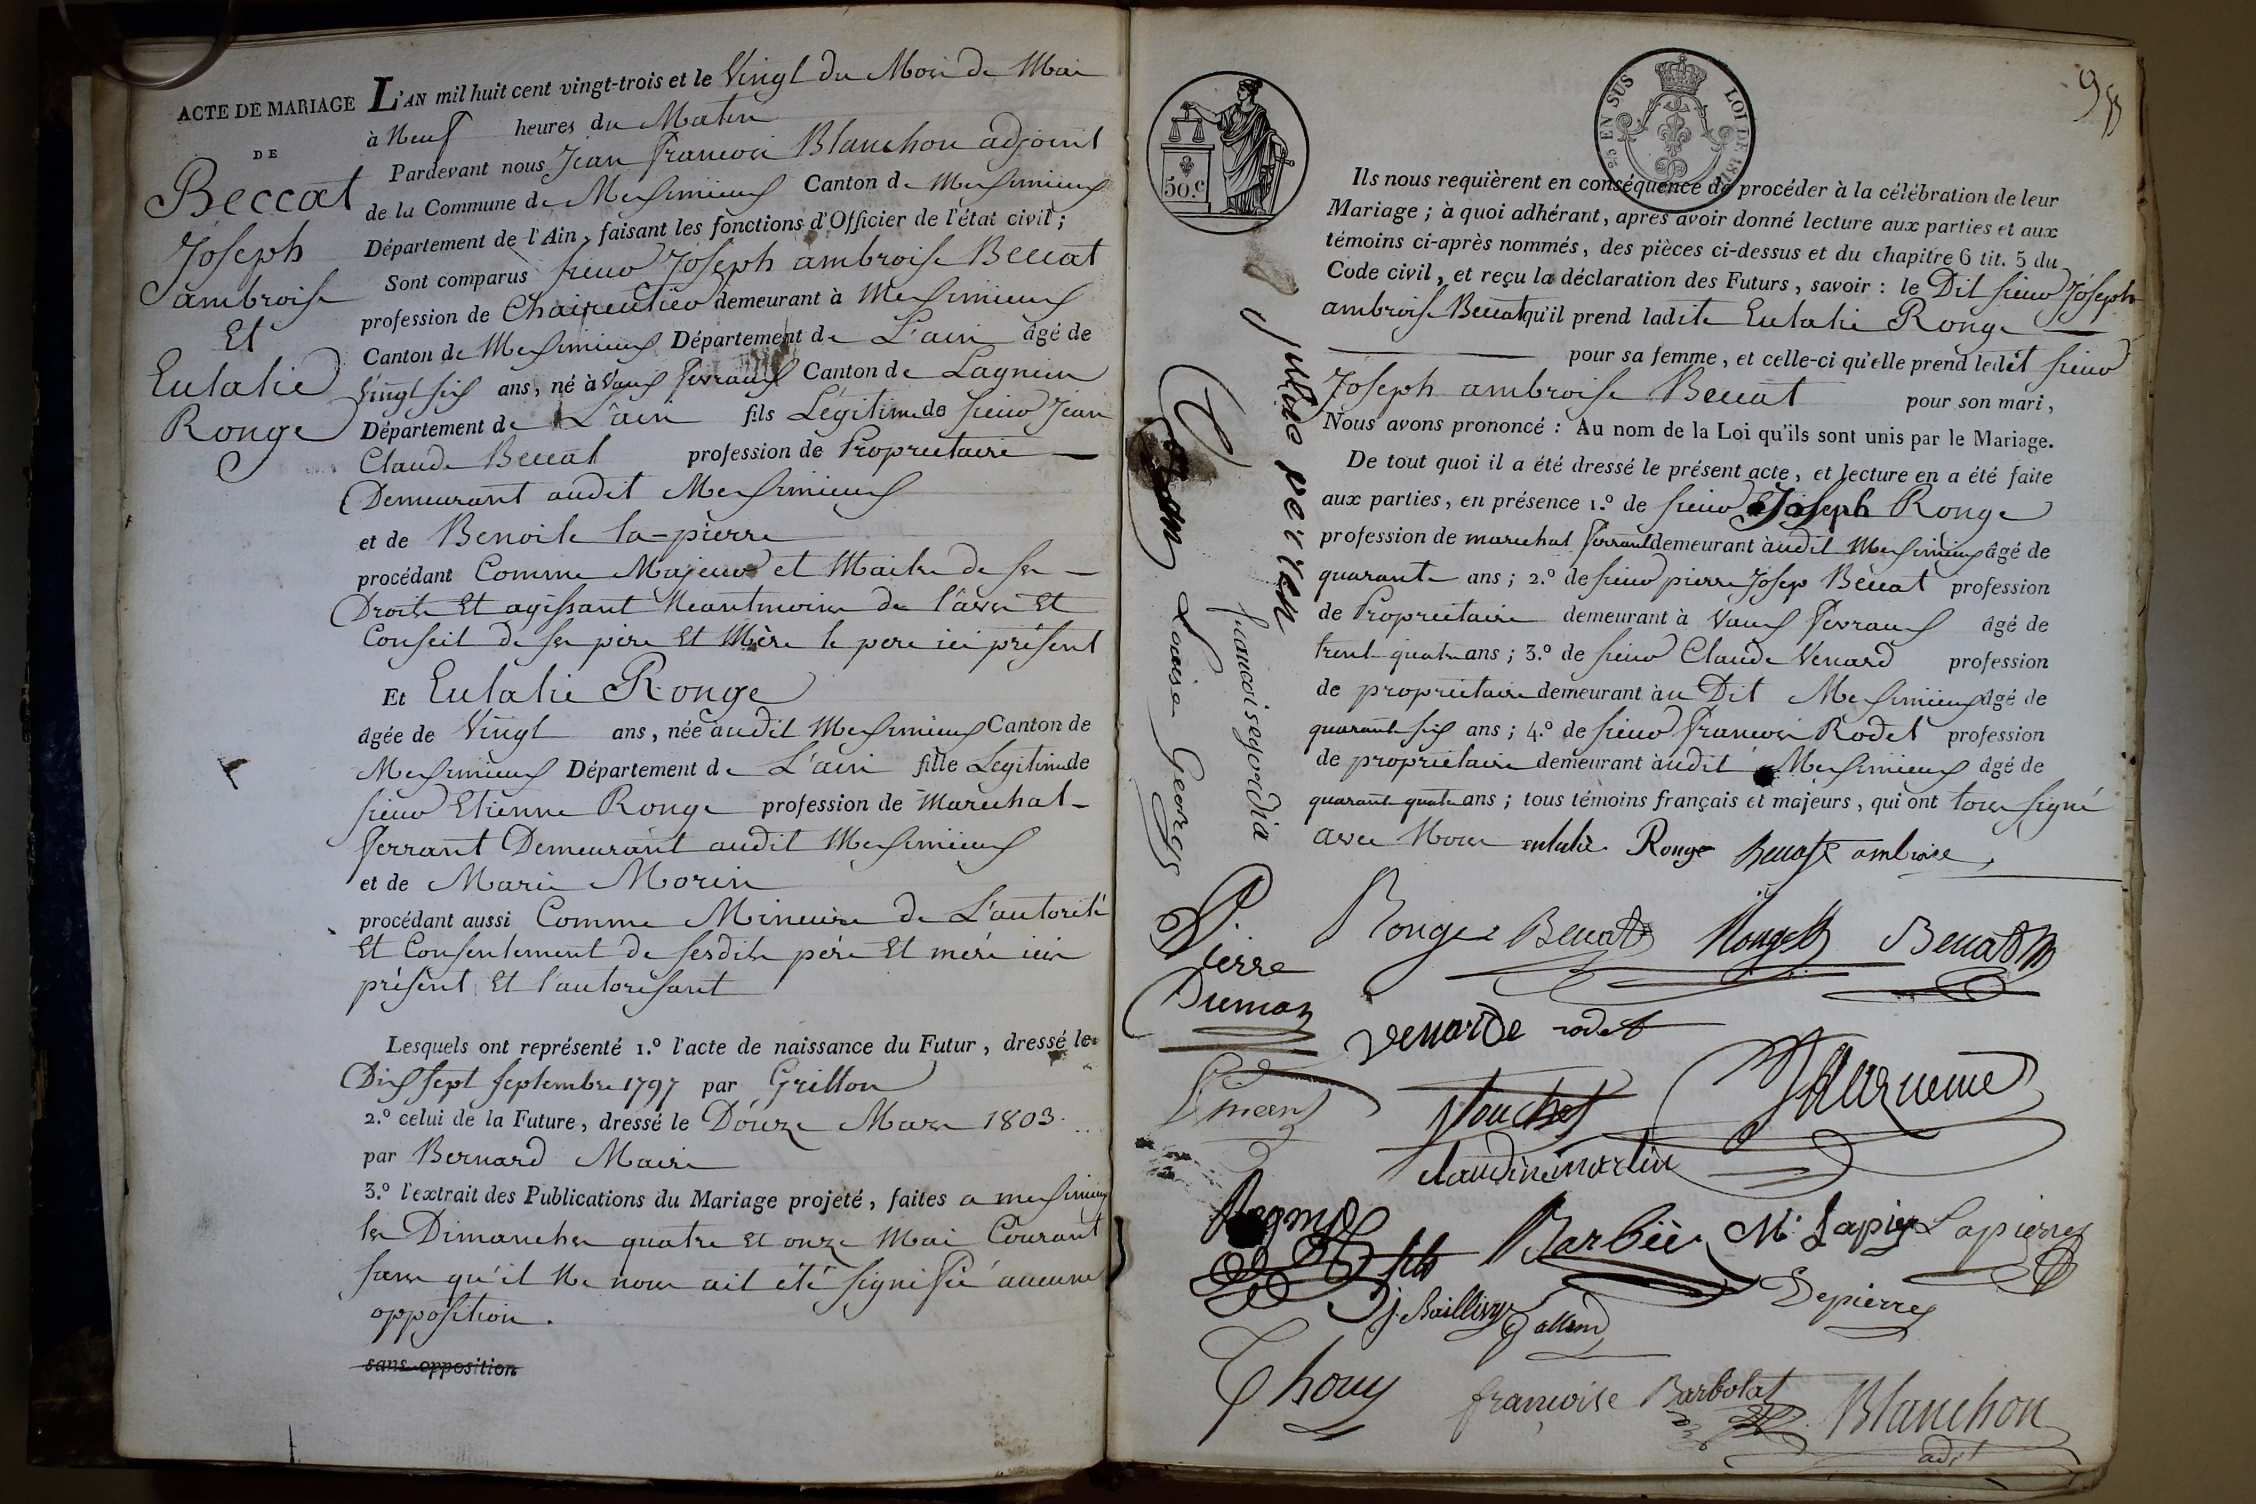 ACTE DE MARIAGE
DE
Beccat
Joseph
ambroise
Et
Eulalie
Ronge
L'AN mil huit cent vingt-trois et le Vingt du Mois de Mai
à Neuf heures du Matin
Pardevant nous Jean françois Blanchon adjoint
de la Commune de Meximieux Canton de Meximieux
Département de l'Ain, faisant les fonctions d'Officier de l'état civil;
Sont comparus sieur Joseph ambroise Beccat
profession de Chaircutier demeurant à Meximieux
Canton de Meximieux Département de L'ain âgé de
vingt six ans, né à Vaux fevroux Canton de Lagnieu
Département de L'ain fils Légitime de sieur Jean
Claude Beccat profession de Propriétaire
Demeurant audit Meximieux
et de Benoite la-pierre
procédant Comme Majeur et Maitre de ses
Droits Et agissant Néantmoins de l'avis Et
Conseil de ses père Et Mère le père ici présent
Et Eulalie Ronge
âgée de Vingt ans, née audit Meximieux Canton de
Meximieux Département de L'ain fille Légitime de
sieur Etienne Ronge profession de Maréchal-
ferrant Demeurant audit Meximieux
et de Marie Morin
procédant aussi Comme Mineure de L'autorité
Et Consentement de sesdits père Et mère ici
présent Et l'autorisant
Lesquels ont représenté 1.º l'acte de naissance du Futur, dressé le
Dix sept septembre 1797 par Grillon
2.º celui de la Future, dressé le Douze Mars 1803
par Bernard Maire
3.º l'extrait des Publications du Mariage projeté, faites a meximieux
les Dimanches quatre et onze Mai Courant
sans qu'il Ne nous ait été signifié aucune
opposition.
sans opposition
98
50.c
EN SUS
LOI DE 1816
Ils nous requièrent en conséquence de procéder à la célébration de leur
Mariage; à quoi adhérant, après avoir donné lecture aux parties et aux
témoins ci-après nommés, des pièces ci-dessus et du chapitre 6 tit. 5 du
Code civil, et reçu la déclaration des Futurs, savoir : le Dit sieur Joseph
ambroise Beccat qu'il prend ladite Eulalie Ronge
pour sa femme, et celle-ci qu'elle prend ledit sieur
Joseph ambroise Beccat pour son mari,
Nous avons prononcé : Au nom de la Loi qu'ils sont unis par le Mariage.
De tout quoi il a été dressé le présent acte, et lecture en a été faite
aux parties, en présence 1.º de sieur Joseph Ronge
profession de marechal ferrant demeurant audit Meximieux âgé de
quarante ans; 2.º de sieur pierre Josep Beccat profession
de Propriétaire demeurant à Vaux fevroux âgé de
trente quatre ans; 3.º de sieur Claude Venard profession
de propriétaire demeurant au Dit Meximieux âgé de
quarante six ans; 4.º de sieur françois Rodet profession
de propriétaire demeurant audit Meximieux âgé de
quarante quatre ans; tous témoins français et majeurs, qui ont tous signé
avec Nous eulalie Ronge Beccat ambroise
Ronge Beccat Ronge Beccat
venarde rodet
claudine martin
Barbier M. Lapierre Lapierre
Depierre
Thouy françoise Barbolat Blanchon
adjt
Louise Georges
Pierre
Dumas
Vincent